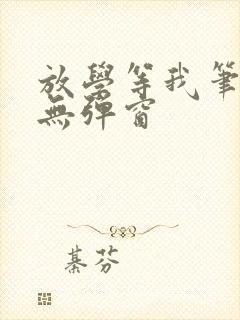 放學等我筆
無彈窗
綦芬